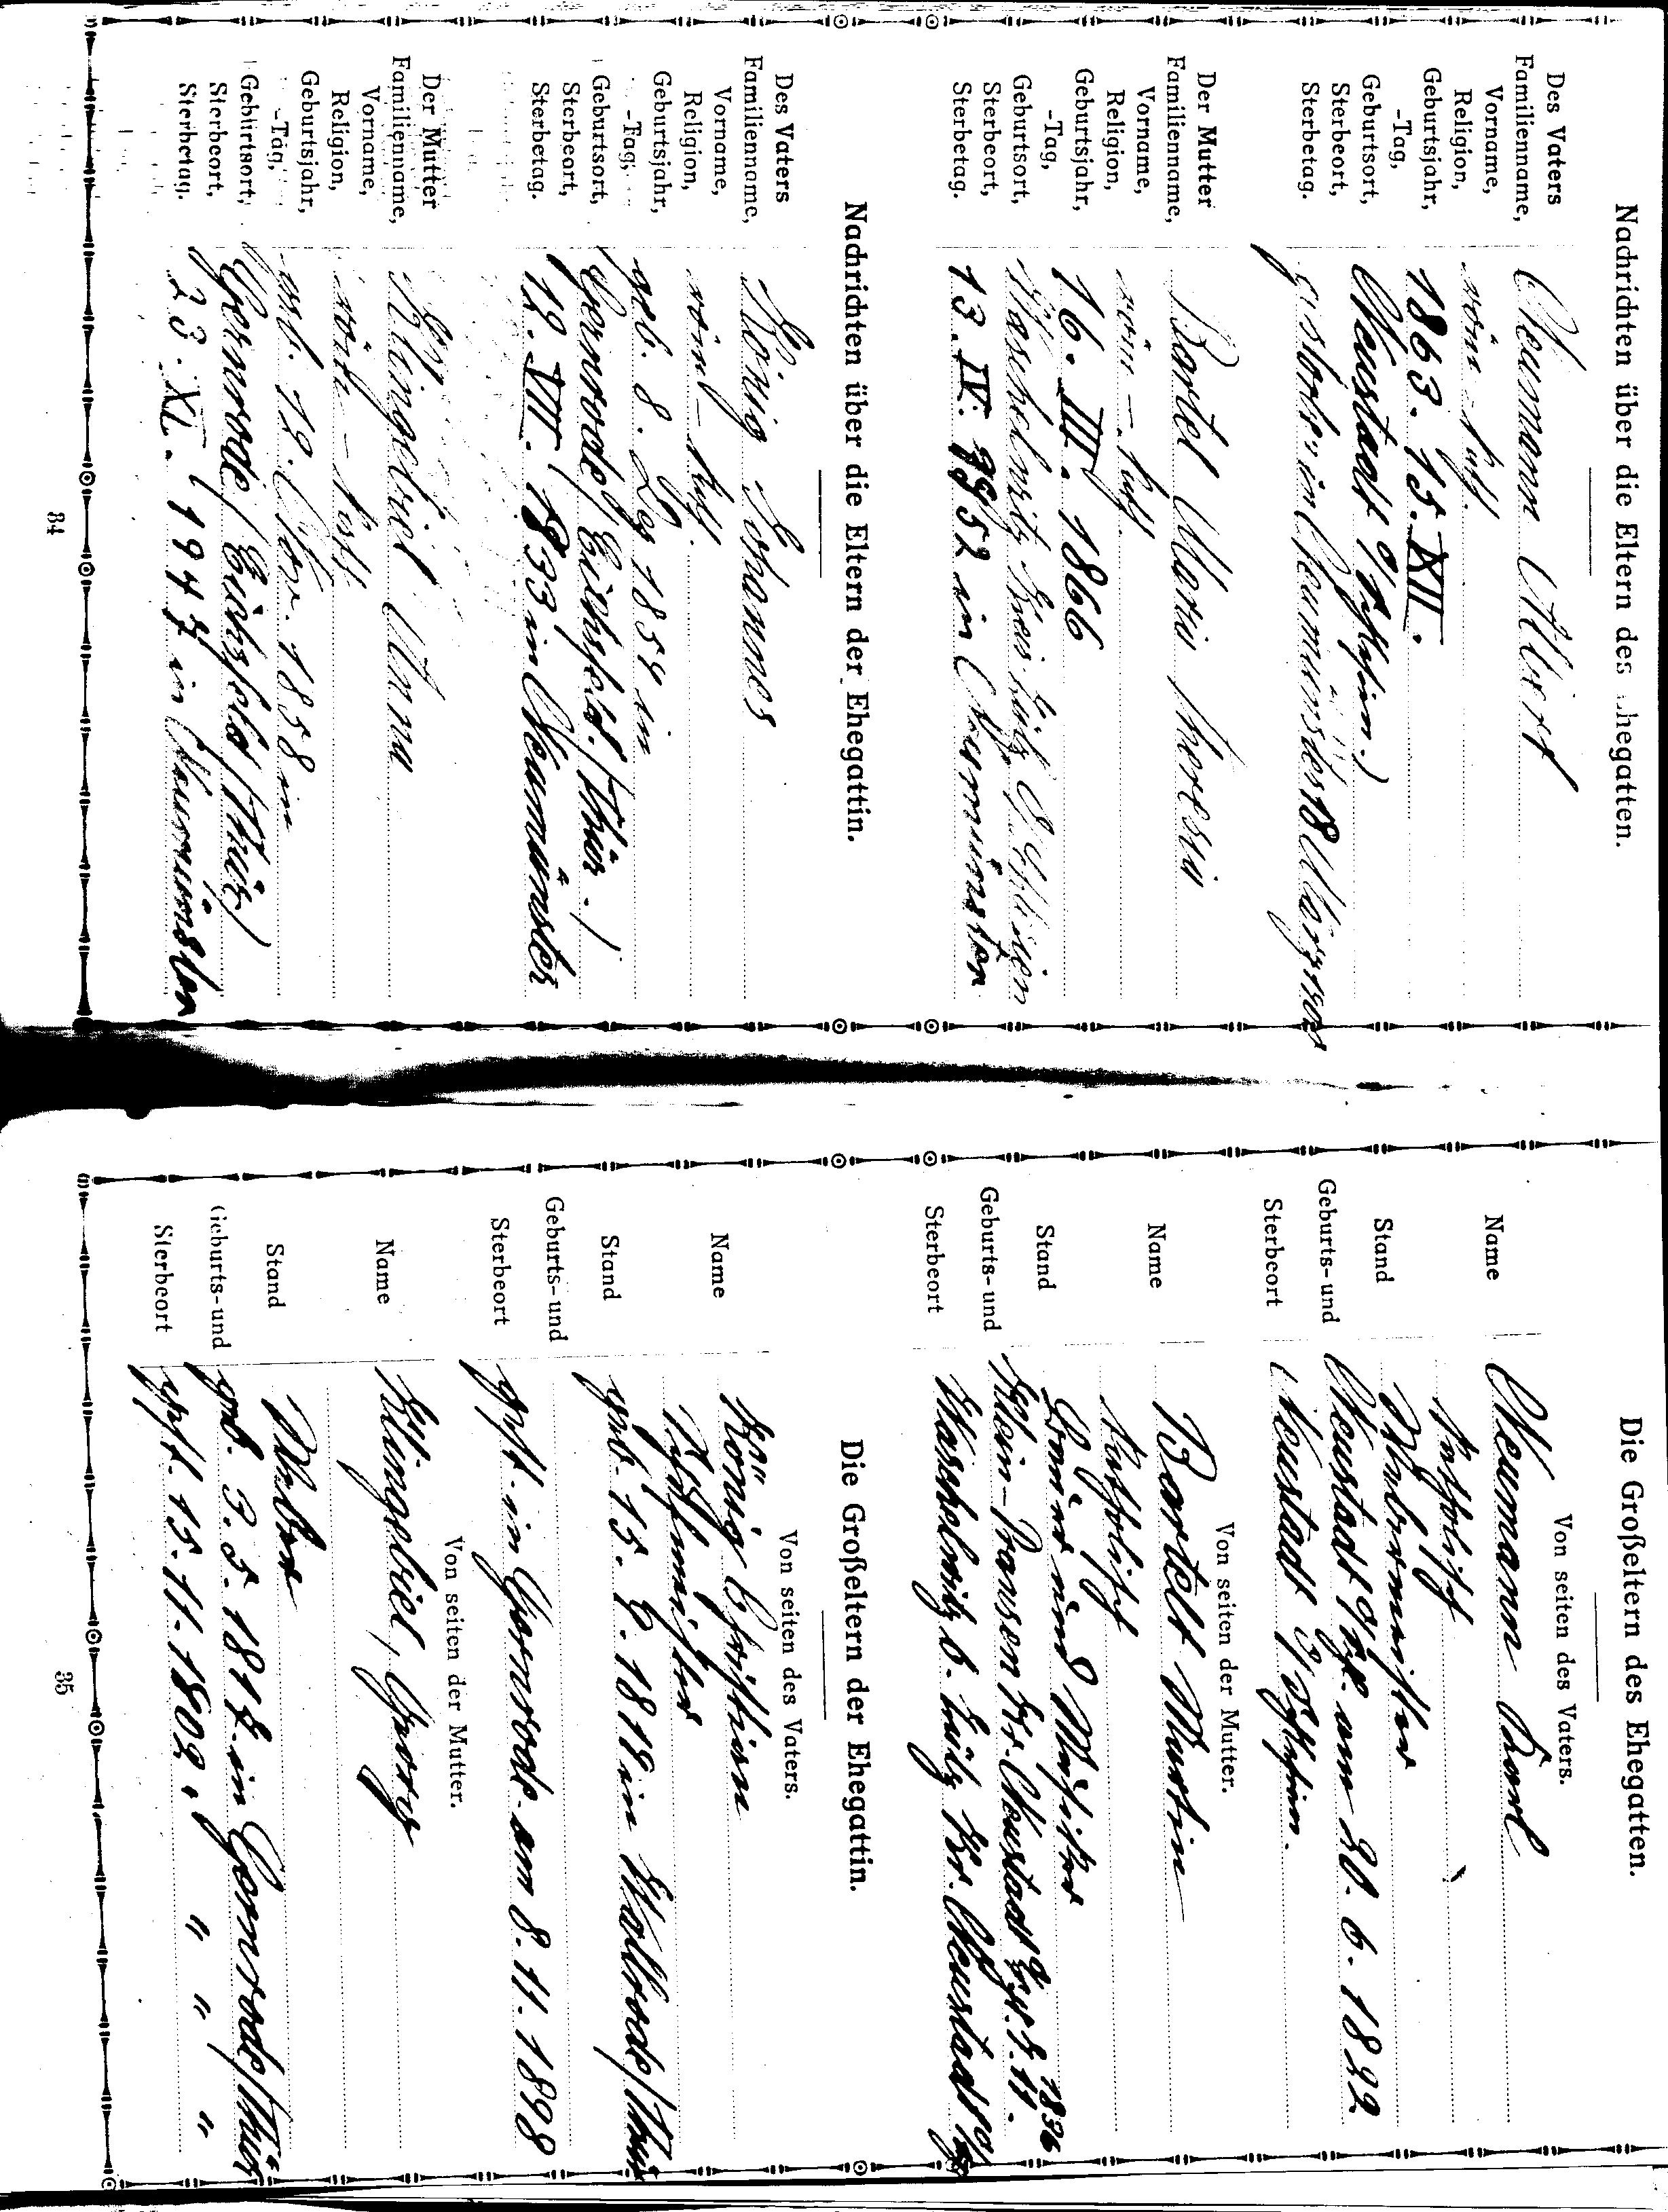 Nachrichten über die Eltern des Ehegatten.
Des Vaters
Familienname, Neumann Albert
Vorname, röm. - kath.
Religion,
Geburtsjahr, 1863. 15. XII.
-Tag,
Geburtsort, Neustadt O/Schlesien.)
Sterbeort, gestorb. in Neumünster 18
Sterbetag.
Der Mutter
Familienname, Bartel Maria Theresia
Vorname, röm - kath.
Religion,
Geburtsjahr, 16. III. 1866
-Tag,
Geburtsort, Waschelwitz Kreis Zülz O/Schlesien
Sterbeort,
Sterbetag. 13. IV. 1952 in Neumünster
Nachrichten über die Eltern der Ehegattin.
Des Vaters
Familienname, König Johannes
Vorname, röm - kath.
Religion,
Geburtsjahr, geb. 8. 1854 in
-Tag,
Geburtsort, Gernrode/Eichsfeld. /Thür./
Sterbeort,
Sterbetag. 12. VII. 1933 in Neumünster
Der Mutter
Familienname, Klingebiel Anna
Vorname, röm - kath.
Religion,
Geburtsjahr, geb. 12. 1858 in
-Tag,
Geburtsort, Gernrode/Eichsfeld /Thür/
Sterbeort,
Sterbetag. 23. XI. 1947 in Neumünster
34
Die Großeltern des Ehegatten.
Von seiten des Vaters.
Name Neumann Karl
katholisch
Stand Webermeister
Geburts- und Neustadt O/Schl. am 30. 6. 1822
Sterbeort Neustadt O/Schlesien.
Von seiten der Mutter.
Name Bartelt Martin
katholisch
Stand Bauer und 1836
Geburts- und Klein-Pramsen Kr. Neustadt O/Schl. 11.
Sterbeort Waschelwitz b. Zülz Kr. Neustadt O/Schl
Die Großeltern der Ehegattin.
Von seiten des Vaters.
Name König Christian
Stand
geb. 15. 2. 1819 in Wallrode/Thür
Geburts- und
Sterbeort gest. in Gernrode am 8. 11. 1898
Von seiten der Mutter.
Name Klingebiel, Georg
Stand Weber
Geburts- und geb. 3. 5. 1817 in Gernrode/Thür
Sterbeort gest. 15. 11. 1902 " " " "
35